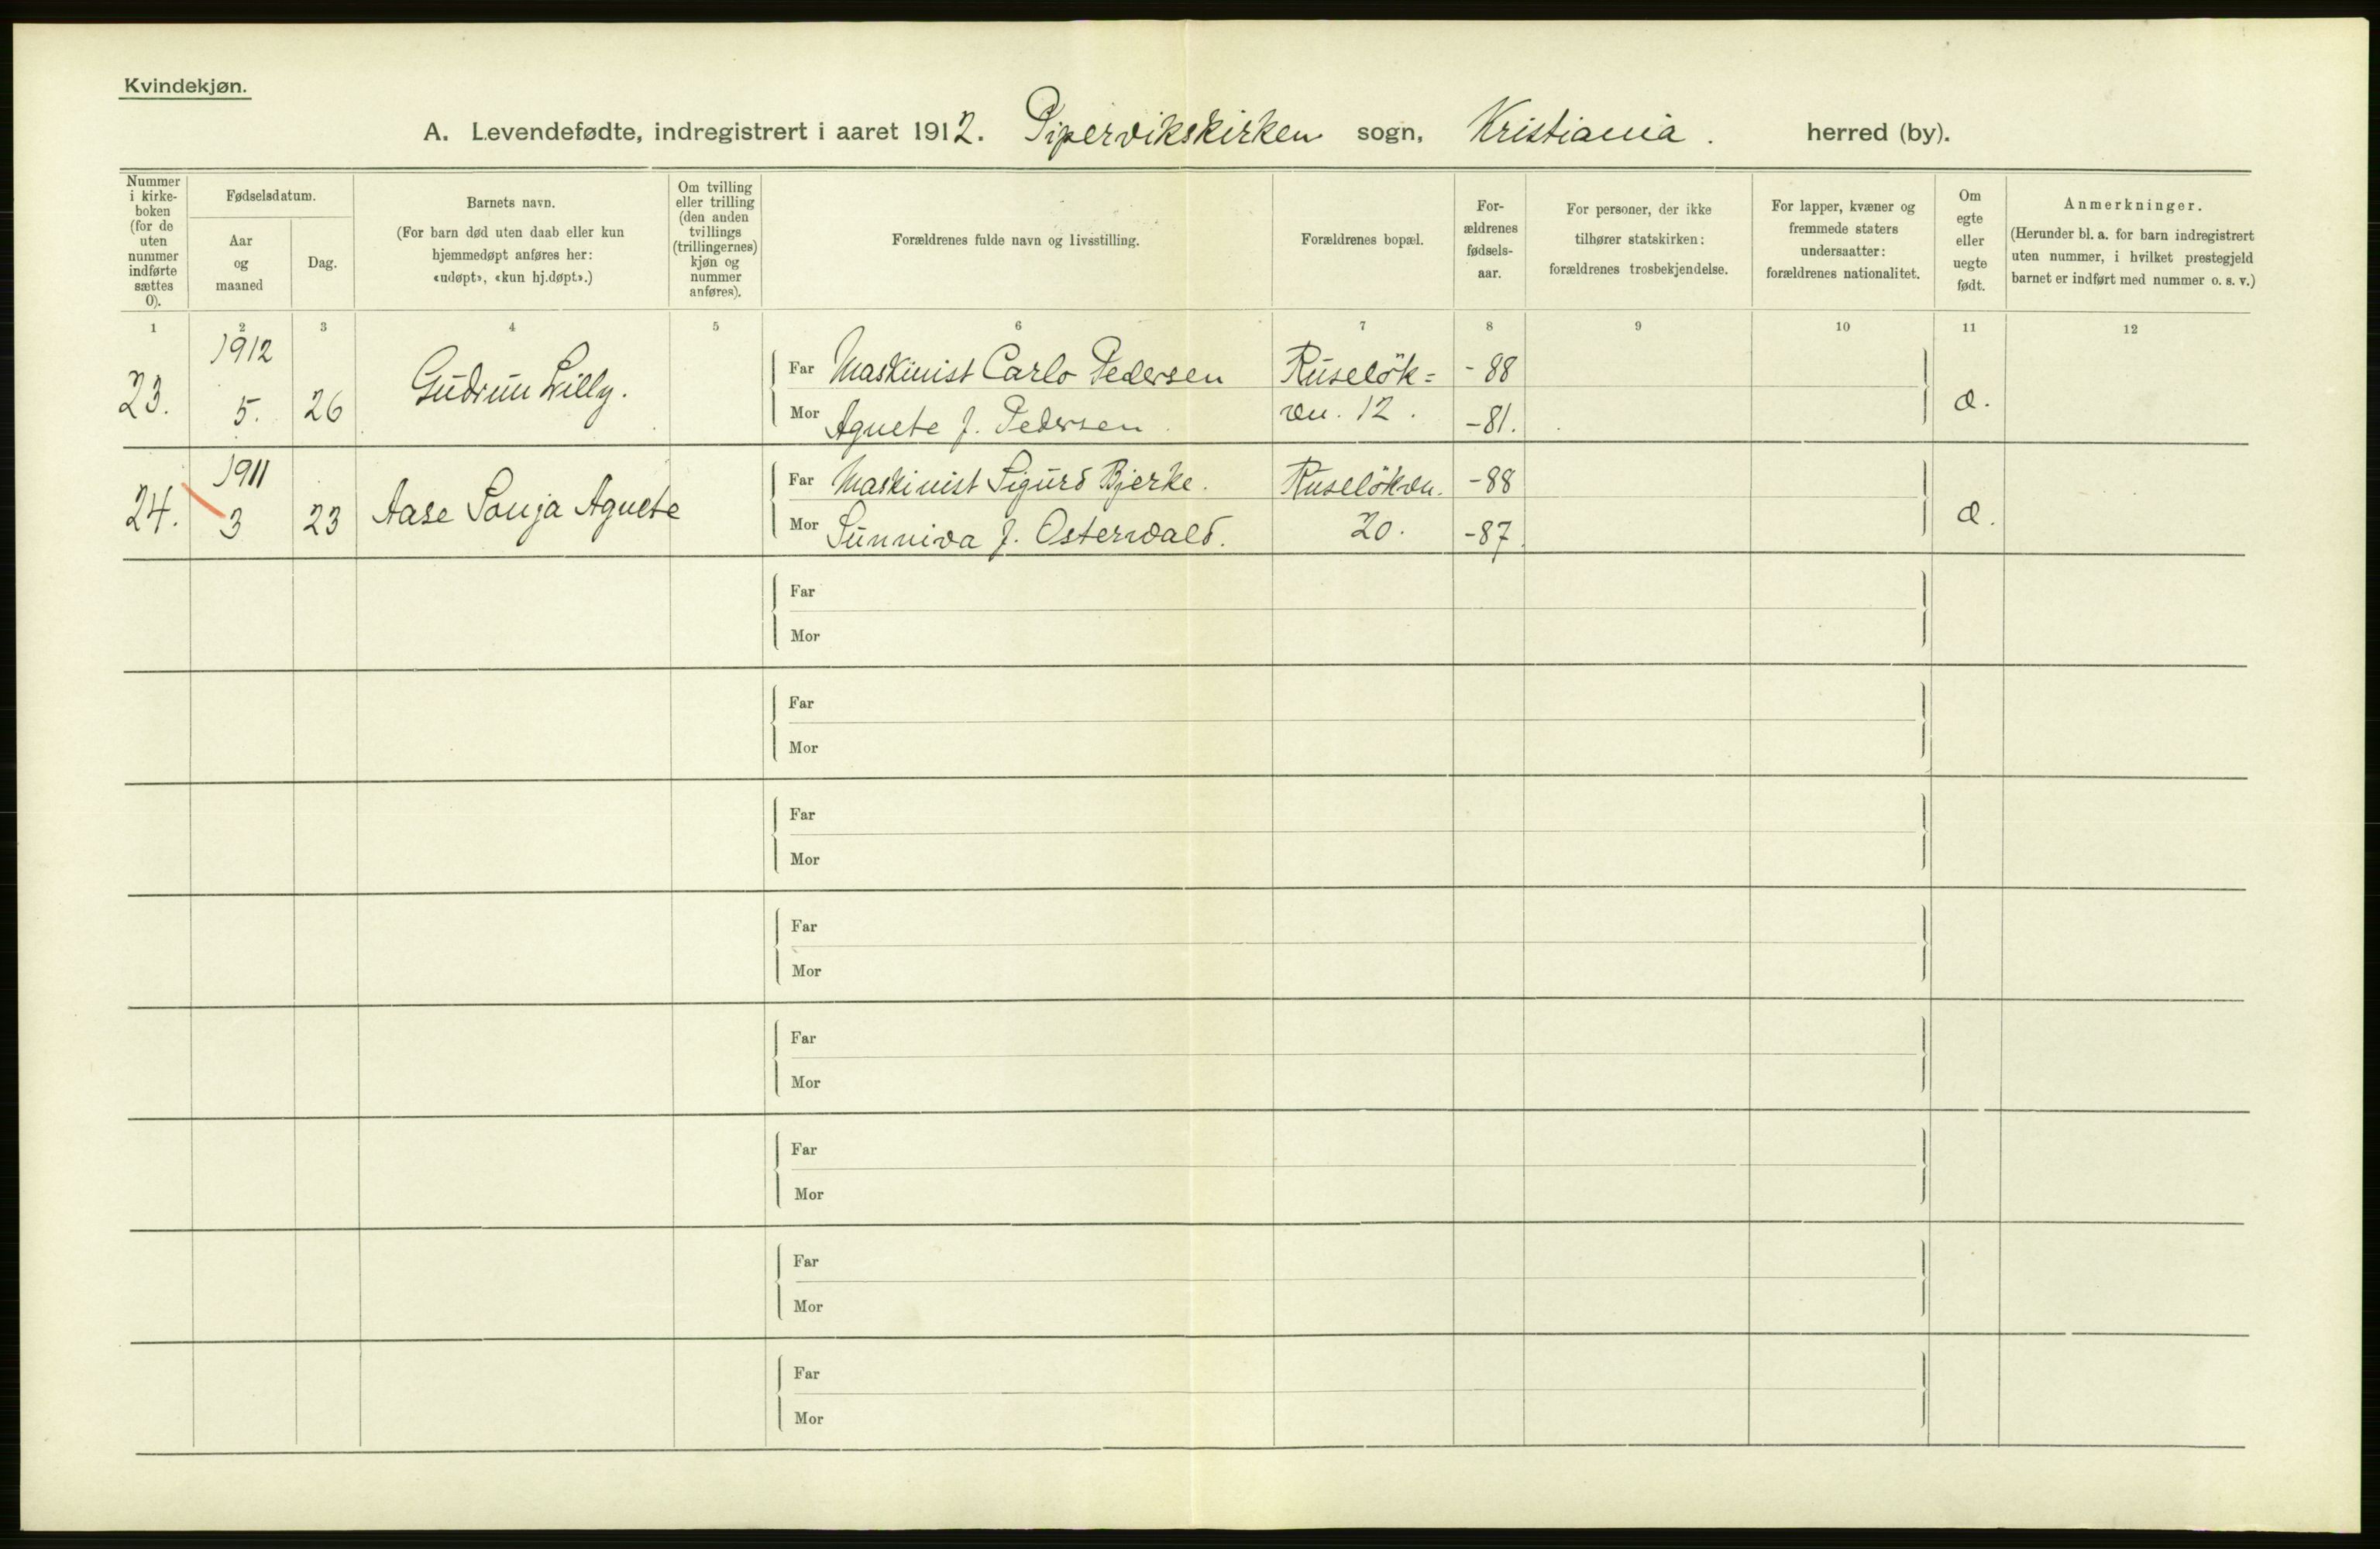 Kvindekjøn.
A. Levendefødte, indregistrert i aaret 1912. Pipervikskirken sogn, Kristiania. herred (by).
Nummer i kirke-boken (for de uten nummer indførte sættes 0).
Fødselsdatum.
Aar og maaned
Dag.
Barnets navn.
(For barn død uten daab eller kun hjemmedøpt anføres her: «udøpt», «kun hj.døpt».)
Om tvilling eller trilling (den anden tvillings (trillingernes) kjøn og nummer anføres).
Forældrenes fulde navn og livsstilling.
Forældrenes bopæl.
For-ældrenes fødsels-aar.
For personer, der ikke tilhører statskirken: forældrenes trosbekjendelse.
For lapper, kvæner og fremmede staters undersaatter: forældrenes nationalitet.
Om egte eller uegte født.
Anmerkninger.
(Herunder bl. a. for barn indregistrert uten nummer, i hvilket prestegjeld barnet er indført med nummer o. s. v.)
1 2 3 4 5 6 7 8 9 10 11 12
23. 1912 5. 26 Gudrun Lilly. Far Maskinist Carlo Pedersen Ruseløk= -88 æ.
Mor Agnete f. Pedersen væn. 12. -81.
24. 1911 3 23 Aase Sonja Agnete Far Maskinist Sigurd Bjerke. Ruseløkvn. -88 æ.
Mor Sunniva f. Osterwald. 20. -87
Far
Mor
Far
Mor
Far
Mor
Far
Mor
Far
Mor
Far
Mor
Far
Mor
Far
Mor